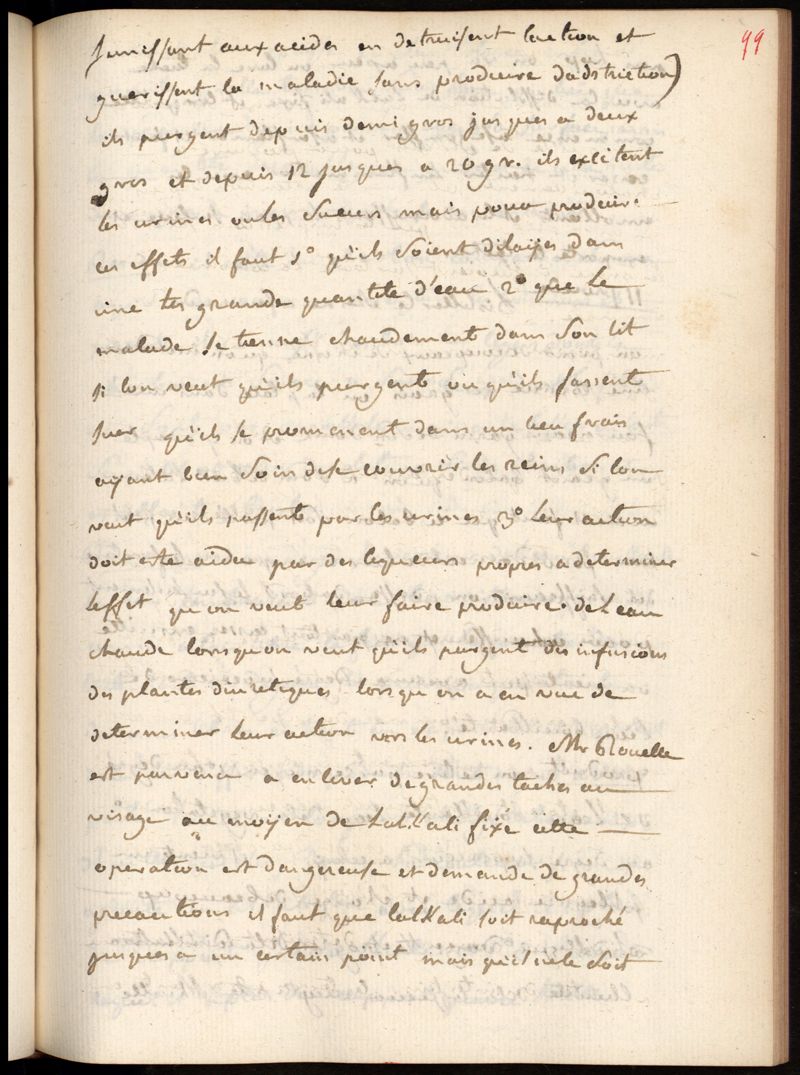 99
sunissant aux acides en detruisent laction et
guerissent la maladie sans produire dadstriction)
ils purgent depuis demi gros jusques a deux
gros et depuis 12 jusques a 20 gr. ils excitent
les urines ou les sueurs mais pour produire
ces effets il faut 1° qu'ils soient délayés dans
une tes grande quantité d'eau 2° que le
malade se tienne chaudement dans son lit
si lon veut qu'ils purgent ou qu'ils fassent
suer qu'ils se promenent dans un lieu frais
ayant bien soin de se couvrir les reins si lon
veut qu'ils passent par les urines 3° leur action
doit estre aidee par des liqueurs propres a determiner
l'effet qu'on veut leur faire produire. de l'eau
chaude lorsqu'on veut qu'ils purgent des infusions
des plantes diuretiques lorsqu'on a en vue de
determiner leur action vers les urines. Mr Rouelle
est parvenu a enlever de grandes taches au
visage au moyen de lalkali fixé cette
operation est dangereuse et demande de grandes
precautions il faut que lalkali soit raproché
jusques a un certain point mais qu'il ne le soit